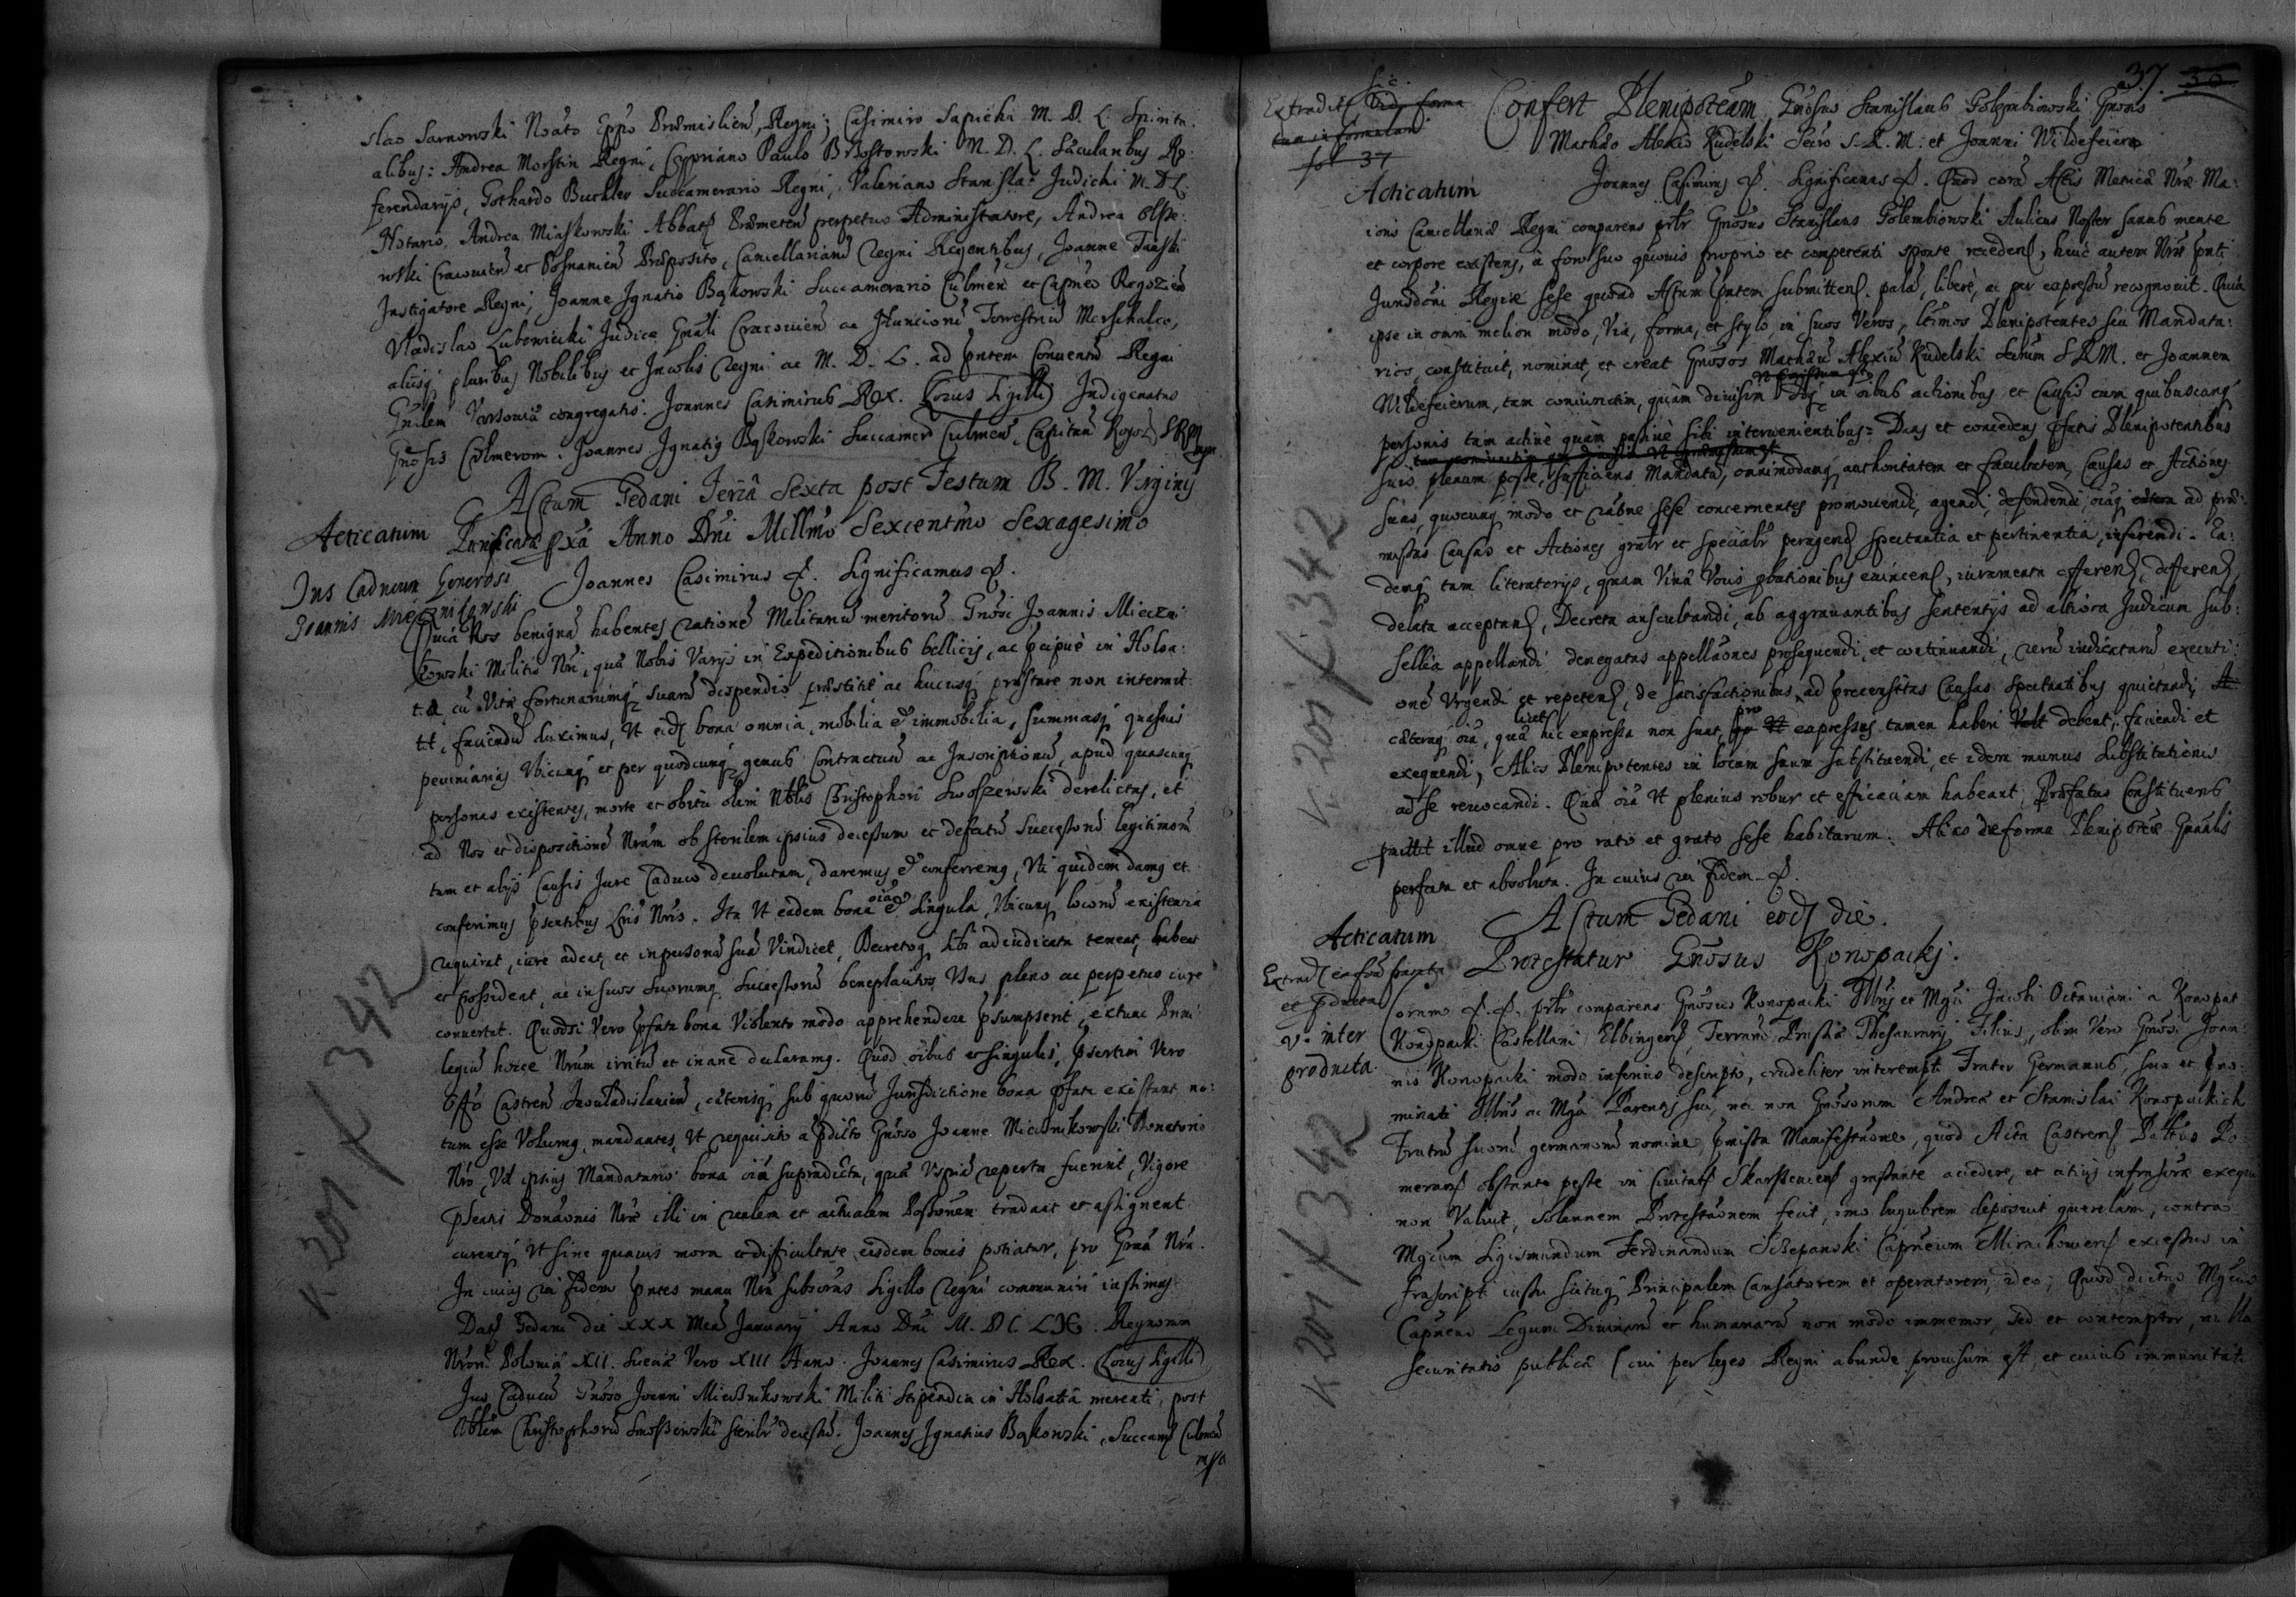 slao Sarnowski Noãto Eppo Præmislien, Regni; Casimiro Sapiehi M. D. L. Spiritu
alibus: Andrea Morstin Regni, Cypriano Paulo Brzostowski M. D. L. Sæcularibus Re
ferendarijs, Gothardo Buttler Succamerario Regni, Valeriano Stanisla: Judichi M. D. L.
Notario, Andrea Miaskowski Abbate Præmeten perpetuo Administratore, Andrea Olsze:
wski Cracovien et Posnanien Præposito, Cancellariaru Regni Regentibus, Joanne Tanski
Instigatore Regni; Joanne Ignatio Bąkowski Succamerario Culmen et Capneo Rogozien
Vladislao Lubowiecki Judice Gnali Cracovien ac Nunciorũ Terrestriũ Marschalco,
alijsq pluribus Nobilibus et Incolis Regni ac M. D. L. ad pntem Conventũ Regni
Gnalem Varsoviæ congregatis. Joannes Casimirus Rex. (Locus Sigilli) Indigenatus
Gnosis Joannes Ignatius Bąkowski Succamer Culmen, Capitan Rogoz SRM
mpp.
Actum Gedani Feria Sexta post Festum B. M. Virginis
Acticatum Purificatæ pxa Anno Dni Millmo Sexcentmo Sexagesimo
Jus Caducum Generosi Joannis Miecznikowski
Joannes Casimirus &. Significamus &.
Quia Nos benignã habentes rationẽ Militariũ meritorũ Gnosi Joannis Mieczni:
kowski Militis Nri, quæ Nobis Varijs in Expeditionibus bellicis, ac pcipuè in Holsa:
tia, cũ Vitæ fortunarumq suarũ dispendio præstitit ac hucusq præstare non intermit:
tit, faciendũ duximus, Ut eidẽ bona omnia, mobilia & immobilia, summasq quasvis
pecuniarias Ubicunq et per quodcunq genus Contractuũ ac Inscriptionũ, apud quascunq
personas existentes, morte et obitu olim Nblis Christophori Swoszewski derelictas, et
ad Nos et dispositionẽ Nram ob sterilem ipsius decessum et defectũ Successorũ legitimorũ
tum et alijs Causis Jure Caduco devolutam, daremus & conferremq, Uti quidem damq et
conferimus psentibus Lris Nris. Ita Ut eadem bona oia & singula, Ubicunq locorũ existentia
requirat, iure adeat, et in personã suã Vindicet, Decretoq sibi adiudicata teneat, habeat
et possideat, ac in suos suorumq Successorũ beneplacitos Usus pleno ac perpetuo iure
convertat. Quodsi Vero pfata bona Violento modo apprehendere psumpserit, extunc Privi:
legiũ hocce Nrum irritũ et inane declaramq. Quod oibus et singulis, psertim Vero
Offo Castren Inowladislavien, cæterisq sub quorũ Jurisdictione bona pfata existunt no:
tum esse Volumq, mandantes, Ut requisito a pdicto Gnoso Joanne Miecznikowski Donatorio
Nro, Vel ipsius Mandatario bona oia supradicta, quæ Uspiã reperta fuerint, Vigore
psentis Donaonis Nræ illi in realem et actualem Possonem tradant et assignent
curentq Ut sine quavis mora et difficultate eisdem bonis potiatur, pro Gratia Nra.
In cuius rei fidem pntes manu Nra subscriptas Sigillo Regni communiri iussimus.
Dat Gedani die XXX Mens Januarij Anno Dni M. DC. LX. Regnorum
Nrorũ Poloniæ XII. Sueciæ Vero XIII Anno. Joannes Casimirus Rex. (Locus Sigilli)
Jus Caducũ Gnoso Joanni Miecznikowski Militi Stipendia in Holsatia merenti, post
Nblem Christophorũ Swoszewski sterilr decessũ. Joannes Ignatius Bąkowski, Succamer Culmen
mpp
K 201 f 342
37. 36
Extradit sic. Vide forma
fol 37
Confert Plenipotẽam Gnosus Stanislaus Golembiowski Gnosis
Mathæo Alexio Kudelski Secro S. R. M: et Joanni Wildefeiero
Acticatum
Joannes Casimirus &. Significamus &. Quod corã Actis Metricæ Nræ Ma:
ioris Cancellariæ Regni comparens prlr Gnosus Stanislaus Golembiowski Aulicus Noster sanus mente
et corpore existens, a foro suo quovis proprio et competenti sponte recedens, huic autem Nræ pnti
Jurisdõni Regiæ sese quoad Actum pntem submittens, palã, liberè, ac per expressũ recognovit. Quia
ipse in omni meliori modo, Via, forma, et stylo in suos Veros, ltimos Plenipotentes seu Mandata:
rios, constituit, nominat, et creat Gnosos Mathæũ Alexiũ Kudelski Secrium S. R. M. et Joannem
Wildefeierum, tam coniunctim, quàm divisim in oibus actionibus et Causis cum quibuscunq
personis tam activè quàm passivè sibi intervenientibus: Dans et concedens pfatis Plenipotentibus
suis plenum posse, sufficiens Mandatũ, omnimodamq authoritatem et facultatem, Causas et Actiones
suas, quocunq modo et rãone sese concernentes promovendi, agendi, defendendi, oiaq ad præ:
missas Causas et Actiones gnalr et specialr peragend spectantia et pertinentia, inferendi. Ea:
demq tam literatorijs, quam Viva Vocis pbationibus evincend, iuramenta offerend, defferend,
delata acceptand, Decreta auscultandi, ab aggravantibus sententijs ad altiora Judicum sub:
sellia appellandi, denegatas appellaones prosequendi, et continuandi, rerũ iudicatarũ executi:
onẽ Urgendi et repetend, de satisfactionibus ad præcensitas Causas spectantibus quietandi,
cæteraq oia, quæ licet hic expressa non sunt, pro expressis tamen haberi debent, faciendi et
exequendi, Alios Plenipotentes in locum suum substituendi, et idem munus Substitutionis
ad se revocandi. Quæ oia Ut plenius robur et efficaciam habeant, Præfatus Constituens
pmittit illud omne pro rato et grato sese habiturum. Alias de forma Plenipotẽæ Gnalis
perfecta et absoluta. In cuius rei fidem &.
Actum Gedani eodẽ die.
Acticatum
Protestatur Gnosus Konopackj.
Extrad
v. inter
producta.
Coram &. &. prlr comparens Gnosus Konopacki Illris et Mgci Jacobi Octaviani a Konopat
Konopacki Castellani Elbingens, Terrarũ Prussiæ Thesaurarij Filius, olim Vero Gnosi Joan:
nis Konopacki modo inferius descripto, crudeliter interempti Frater Germanus, suo et pno:
minati Illris ac Mgci Parentis sui, nec non Gnosorum Andreæ et Stanislai Konopackich
Fratrũ suorũ germanorũ nomine, pmissa Manifestãone, quòd Acta Castrens Pallus Po:
merans obstante peste in Civitate Skarszeviens grassante accedere, et citius infrascripta exequi
non Valuit, solennem Protestãonem fecit, imo lugubrem deposuit querelam, contra
Mgcum Sigismundum Ferdinandum Szczepanski Capneum Mirachoviens excessus in
frascripti iussu suisq Principalem Causatorem et operatorem, ideo; Quod dictus Mgcus
Capneus Legum Divinarũ et humanarũ non modo immemor, sed et contemptor, nulla
securitatis publicæ (cui per leges Regni abunde provisum est, et cuius immunitat
K 201 f 342
K 201 f 342